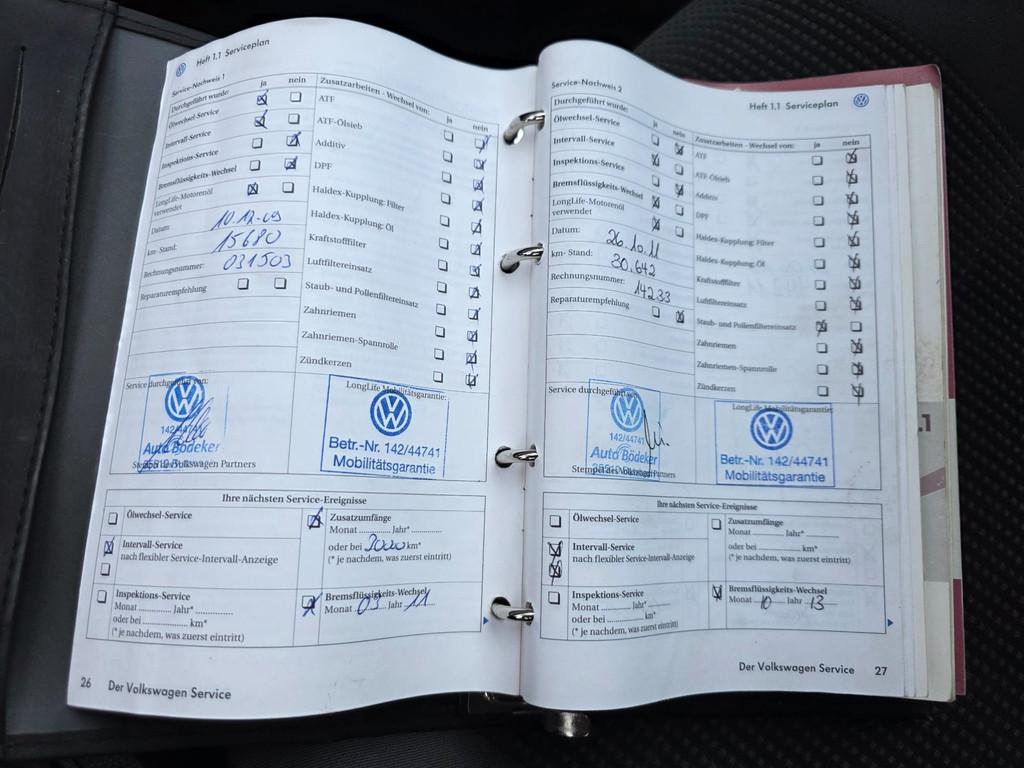 Heft 1.1 Serviceplan
Service-Nachweis 1
Durchgeführt wurde: ja nein
Ölwechsel-Service
Intervall-Service
Inspektions-Service
Bremsflüssigkeits-Wechsel
LongLife-Motorenöl
verwendet
Datum: 10.12.09
km-Stand: 15680
Rechnungsnummer: 031503
Reparaturempfehlung
Zusatzarbeiten - Wechsel von: ja nein
ATF
ATF-Ölsieb
Additiv
DPF
Haldex-Kupplung: Filter
Haldex-Kupplung: Öl
Kraftstofffilter
Luftfiltereinsatz
Staub- und Pollenfiltereinsatz
Zahnriemen
Zahnriemen-Spannrolle
Zündkerzen
Service durchgeführt von:
142/44741
Auto Bödeker
Stempel des Volkswagen Partners
LongLife Mobilitätsgarantie:
Betr.-Nr. 142/44741
Mobilitätsgarantie
Ihre nächsten Service-Ereignisse
Ölwechsel-Service
Intervall-Service
nach flexibler Service-Intervall-Anzeige
Inspektions-Service
Monat ........ Jahr* ........
oder bei ........ km*
(* je nachdem, was zuerst eintritt)
Zusatzumfänge
Monat ........ Jahr* ........
oder bei 30000 km*
(* je nachdem, was zuerst eintritt)
Bremsflüssigkeits-Wechsel
Monat 09 Jahr 11
26 Der Volkswagen Service
Heft 1.1 Serviceplan
Service-Nachweis 2
Durchgeführt wurde: ja nein
Ölwechsel-Service
Intervall-Service
Inspektions-Service
Bremsflüssigkeits-Wechsel
LongLife-Motorenöl
verwendet
Datum: 26.10.11
km- Stand: 30.642
Rechnungsnummer: 14233
Reparaturempfehlung
Zusatzarbeiten - Wechsel von: ja nein
ATF
ATF-Ölsieb
Additiv
DPF
Haldex-Kupplung: Filter
Haldex-Kupplung: Öl
Kraftstofffilter
Luftfiltereinsatz
Staub- und Pollenfiltereinsatz
Zahnriemen
Zahnriemen-Spannrolle
Zündkerzen
Service durchgeführt von:
142/44741
Auto Bödeker
Stempel des Volkswagen Partners
LongLife Mobilitätsgarantie:
Betr.-Nr. 142/44741
Mobilitätsgarantie
Ihre nächsten Service-Ereignisse
Ölwechsel-Service
Intervall-Service
nach flexibler Service-Intervall-Anzeige
Inspektions-Service
Monat ........ Jahr* ........
oder bei ........ km*
(* je nachdem, was zuerst eintritt)
Zusatzumfänge
Monat ........ Jahr* ........
oder bei ........ km*
(* je nachdem, was zuerst eintritt)
Bremsflüssigkeits-Wechsel
Monat 10 Jahr 13
Der Volkswagen Service 27